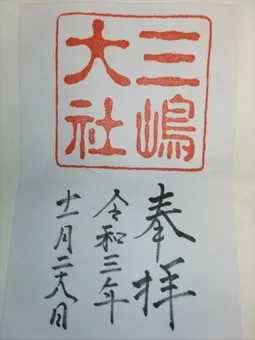 三嶋
大社
奉拝
令和三年
十一月二十八日